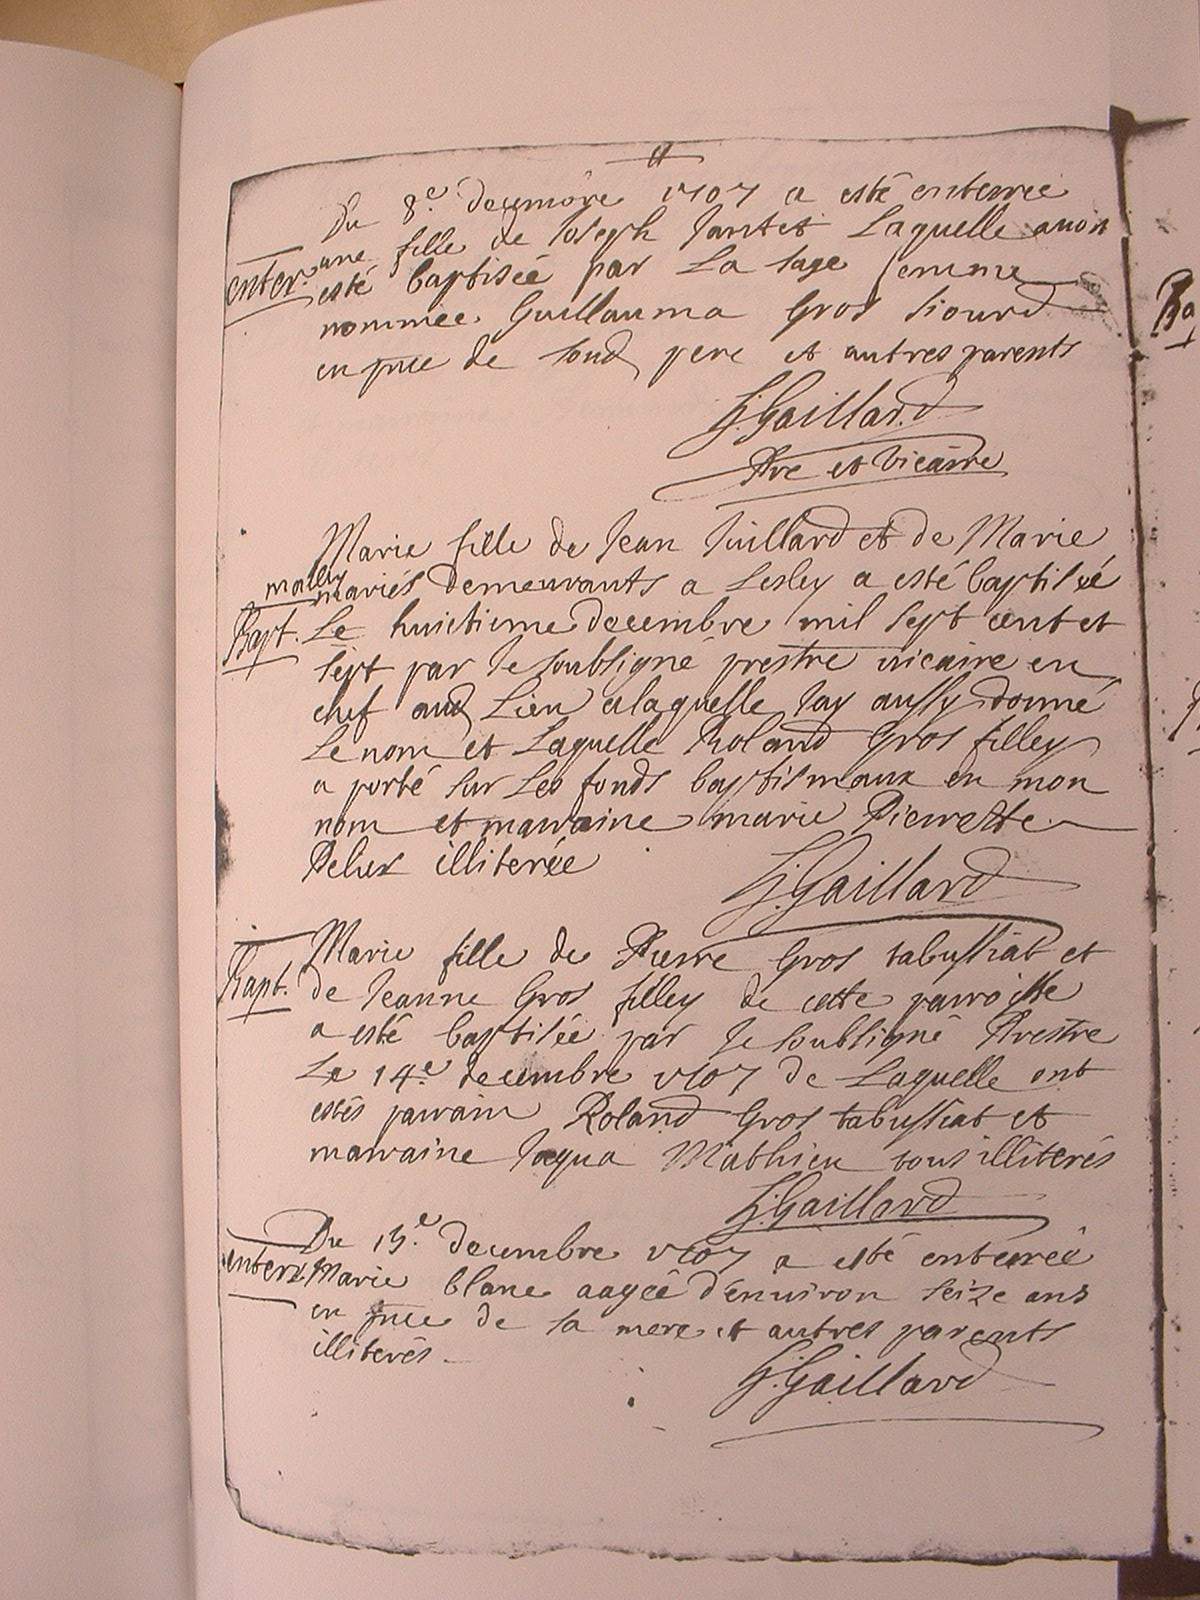 Du 8.e decembre 1707 a esté enterrée
une fille de Joseph Jantet Laquelle avoit
enter. esté baptisée par La sage femme
nommée Guillauma Gros Siourd
en pnce de soud pere et autres parents
G: Gaillard
Pre et vicaire
Marie fille de Jean Juillard et de Marie
mailly mariés demeurants a Lesley a esté baptisée
Bapt. Le huictieme decembre mil sept cent et
sept par Je soubsigné prestre vicaire en
chef aud Lieu a laquelle Jay aussy donné
Le nom et Laquelle Roland Gros filley
a porté sur Les fonds baptismaux en mon
nom et marraine marie Pierrette
Pelux illiterée
G: Gaillard
Marie fille de Pierre Gros tabussiat et
Bapt. de Jeanne Gros filley de cette parroisse
a esté baptisée par Je soubsigné Prestre
Le 14.e decembre 1707 de Laquelle ont
estés parrain Roland Gros tabussiat et
marraine Jaqua Mathieu tous illiterés
G: Gaillard
Du 15.e decembre 1707 a esté enterrée
enterr. Marie blanc aagée d'environ seize ans
en pnce de sa mere et autres parents
illiterés
G: Gaillard